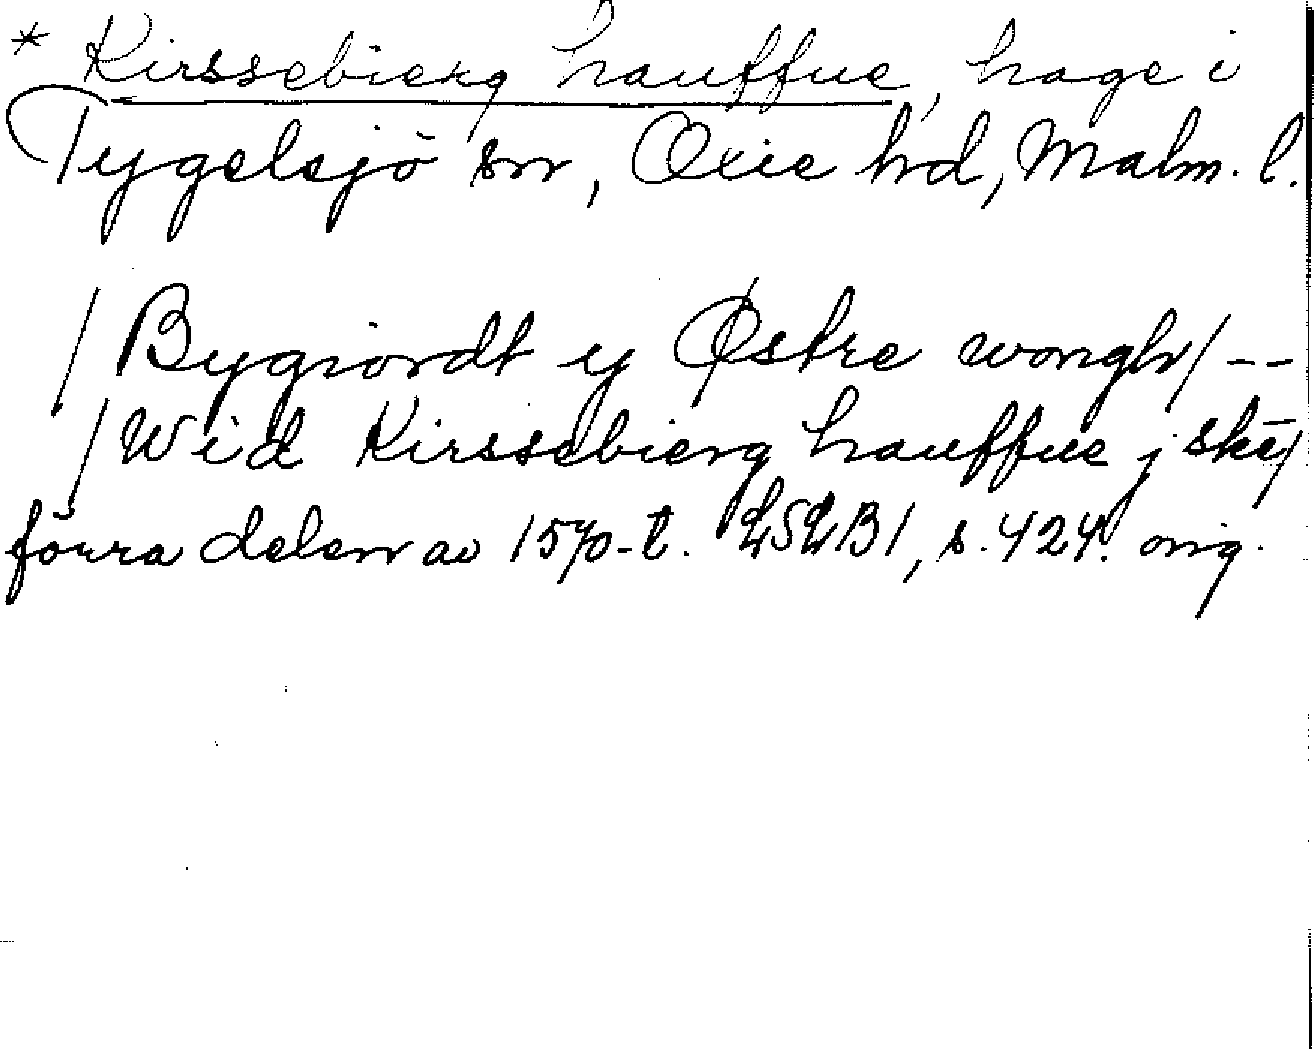 * Kirssebierg hauffue, hage i
Tygelsjö sn, Oxie hd, Malm. l.
/ Bygiordt y Østre wongh/ --
/ Wid Kirssebierg hauffue j skē/
förra delen av 1570-t. LSLB1, s. 424. orig.